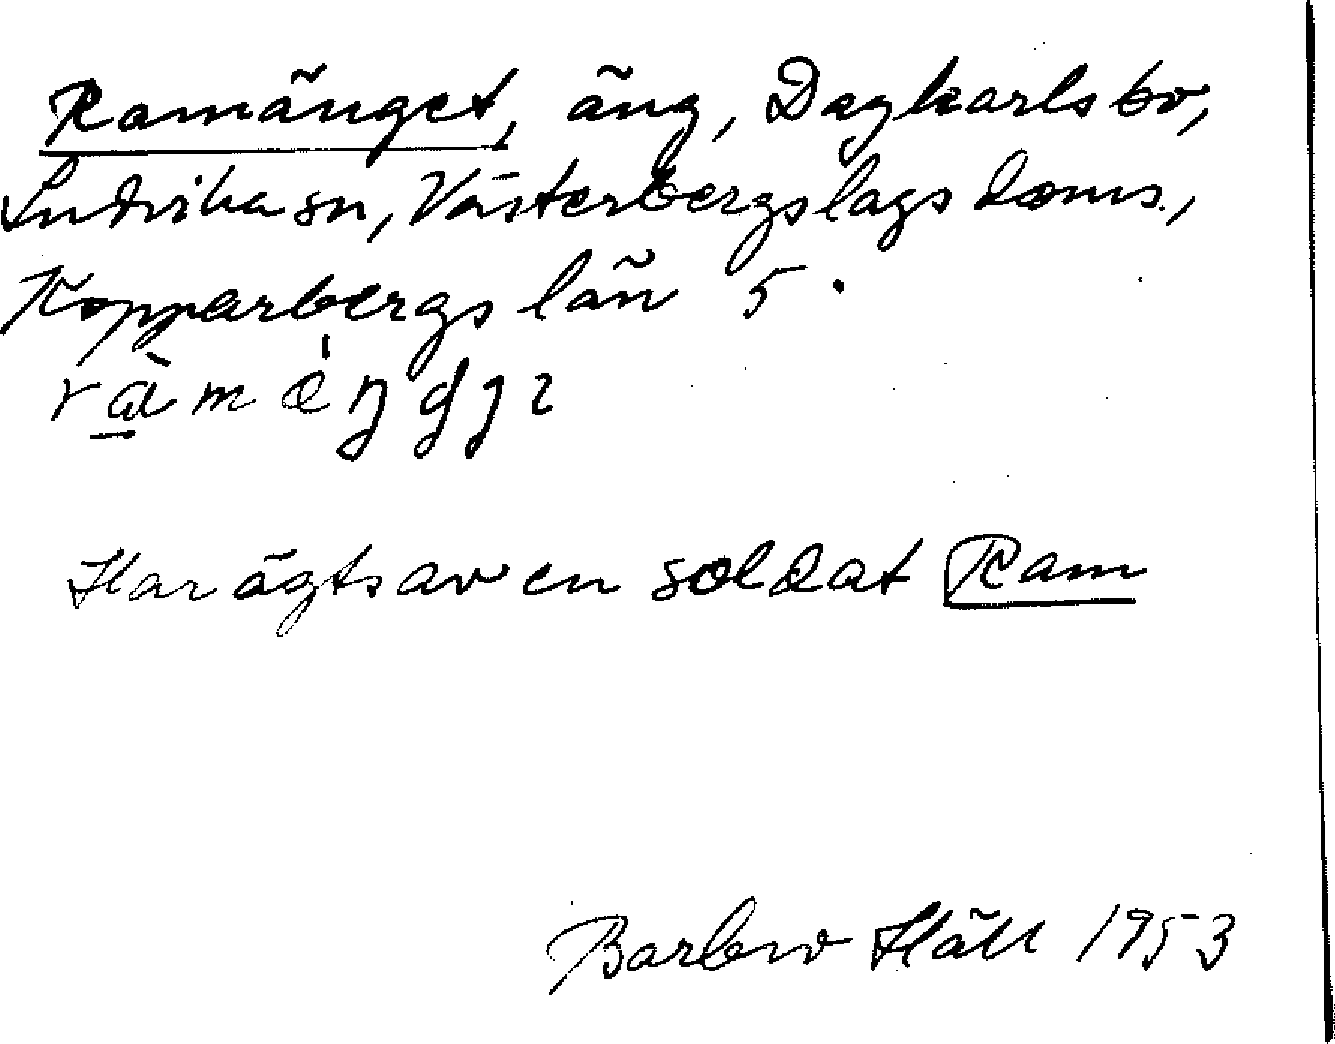 Ramänget, äng, Dagkarlsbo,
Ludvika sn, Västerbergslags doms.,
Kopparbergs län 5.
Har ägts av en soldat Ram
Barbro Häll 1953